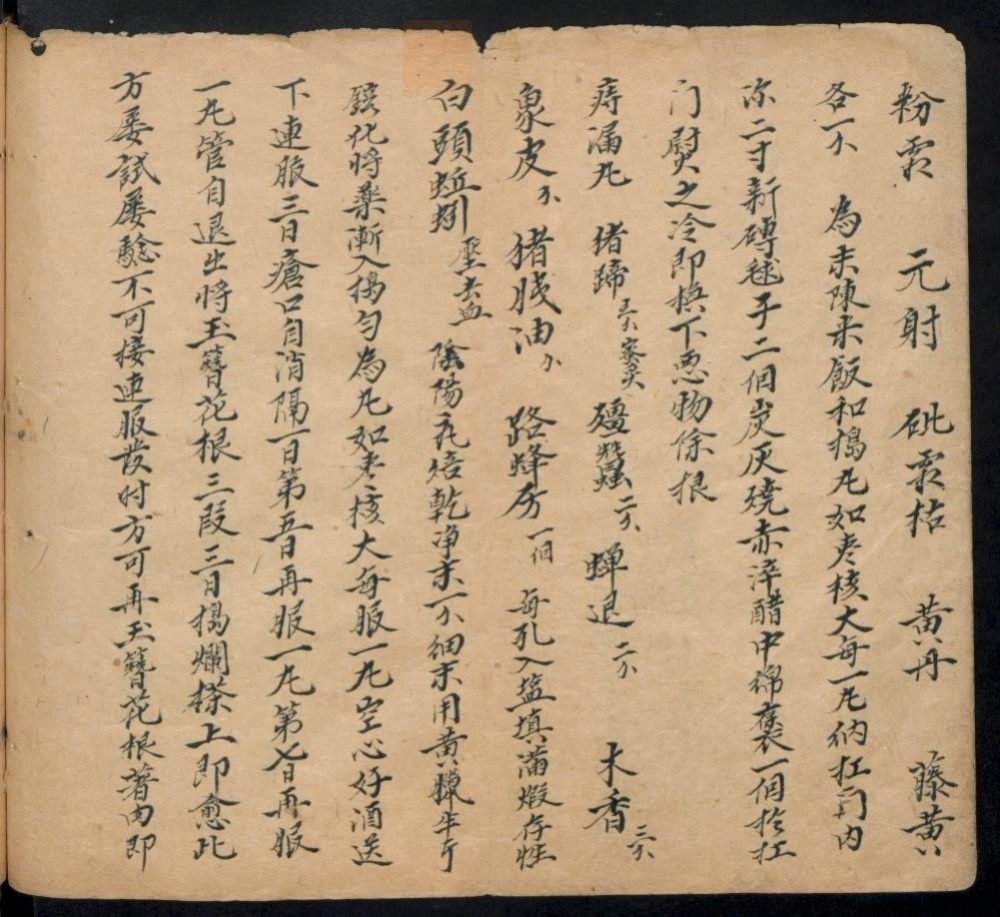 粉霜 元射 砒霜枯 黃丹 藤黃
各一个 為末陳米飯和搗丸如枣核大每一丸納扛门內
深二寸新磚毬子二個炭灰燒赤淬醋中綿裹一個於扛
门熨之冷即换下悪物除根
痔漏丸 猪蹄 殭蠶二个 蟬退二个 木香三个
象皮 猪胘油 路蜂房一個 每孔入塩填滿煅存性
白頭蚯蚓 陰陽瓦焙乾净末一个細末用黄蠟半斤
鎔化將藥漸入搗匀為丸如枣核大每服一丸空心好酒送
下連服三日瘡口自消隔一日第五日再服一丸第七日再服
一丸管自退出將玉簪花根三段三日搗爛搽上即愈此
方屡試屡驗不可接連服發时方可再玉簪花根著肉即